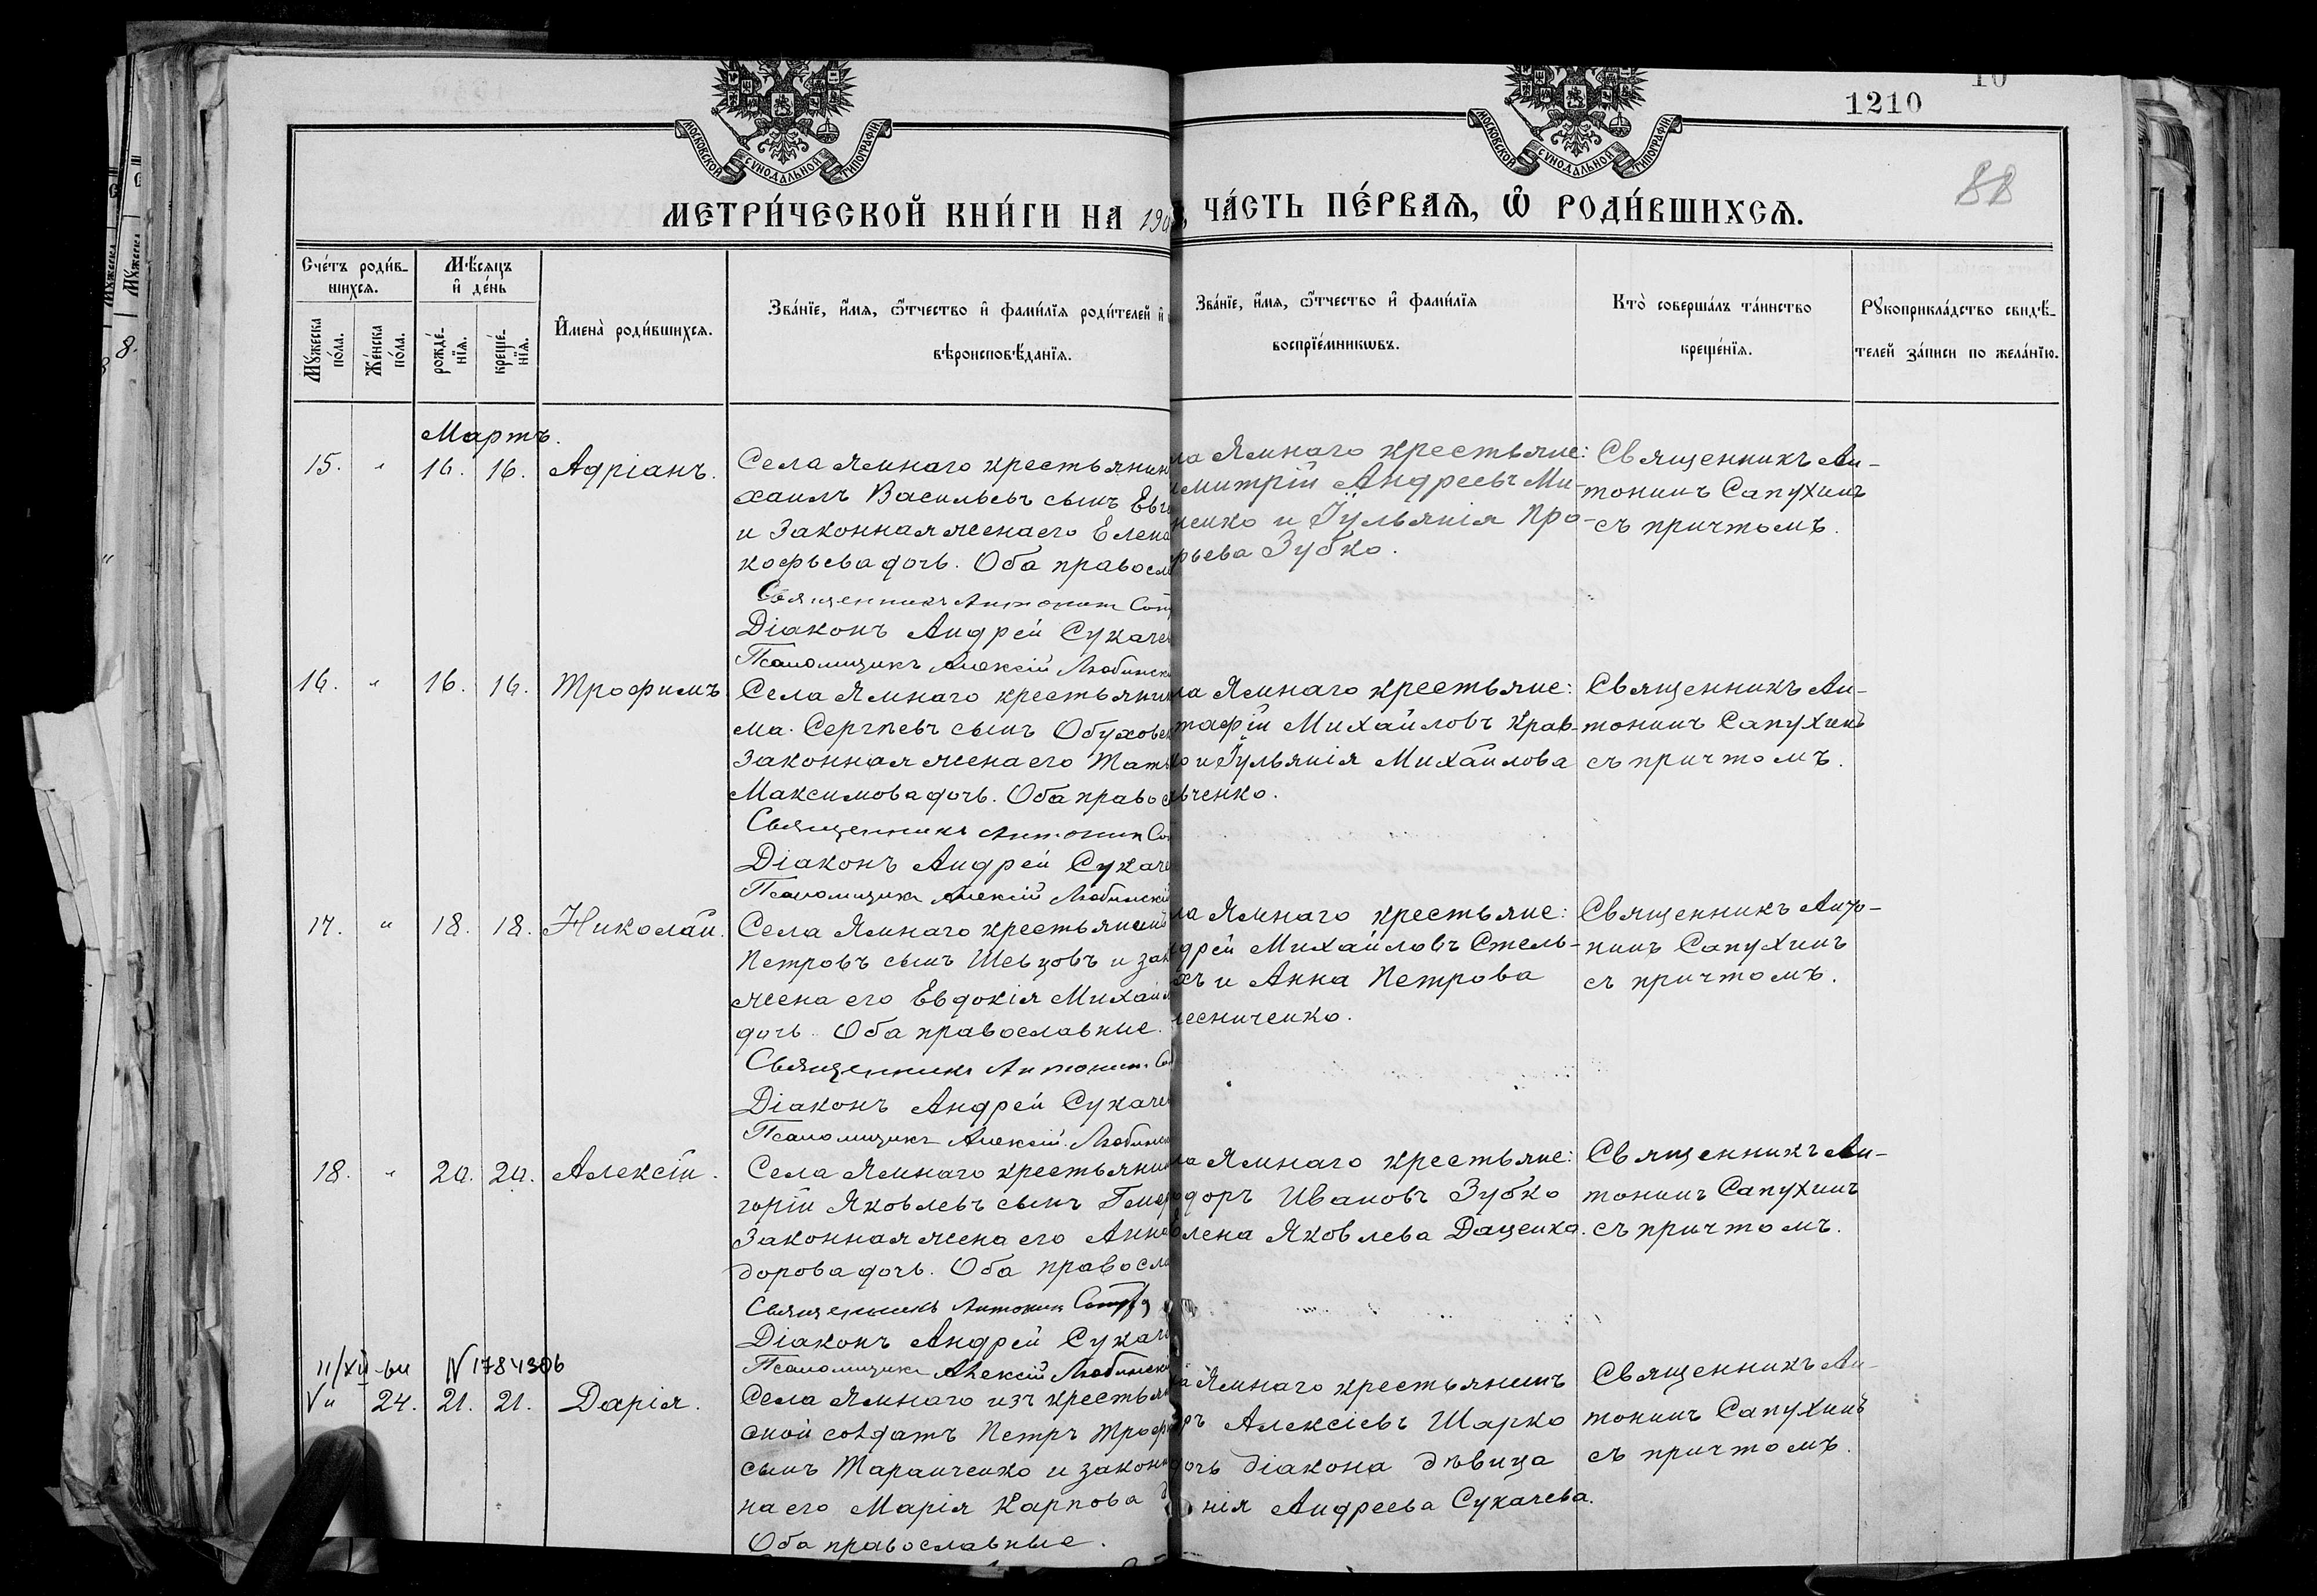 1210
88
МОСКОВСКОЙ СѴНОДАЛЬНОЙ ТИПОГРАФІИ
МОСКОВСКОЙ СѴНОДАЛЬНОЙ ТИПОГРАФІИ
МЕТРИ́ЧЕСКОЙ КНИ́ГИ НА 190
ЧА́СТЬ ПЕ́РВАѦ, Ѡ҆ РОДИ́ВШИХСѦ.
Сче́тъ роди́в-
шихсѧ.
Мꙋ́жеска по́ла.
Же́нска по́ла.
Мѣ́сѧцъ
и҆ де́нь
рожде́-
нїѧ.
креще́-
нїѧ.
И҆мена̀ роди́вшихсѧ.
Зва́нїе, и҆́мѧ, ѻ҆́тчество и҆ фами́лїѧ роди́телей и҆
вѣроисповѣ́данїѧ.
Зва́нїе, и҆́мѧ, ѻ҆́тчество и҆ фами́лїѧ
воспрїе́мникѡвъ.
Кто̀ соверша́лъ та́инство
креще́нїѧ.
Рꙋкоприкла́дство свидѣ́-
телей за́писи по жела́нїю.
Мартъ.
15. " 16. 16. Адріанъ.
Села Ямнаго крестьянин
хаилъ Васильевъ сынъ Евч
и законная жена его Елена
кофьева дочь. Оба правосла
Священникъ Антонин
Діаконъ Андрей Сукаче
Псаломщикъ Алексій Любинск
ла Ямнаго крестьяне:
имитрій Андреевъ Ми-
ненко и Іульянія Про-
фьева Зубко.
Священникъ Ан-
тонинъ Сапухинъ
съ причтомъ.
16. " 16. 16. Трофимъ
Села Ямнаго крестьянин
ма Сергѣевъ сынъ Обухове
законная жена его Тать
Максимова дочь. Оба правос
Священникъ Антонин
Діаконъ Андрей Сукаче
Псаломщикъ Алексій Любинскі
ла Ямнаго крестьяне:
тафій Михайловъ Крав-
ко и Іульянія Михайлова
вченко.
Священникъ Ан-
тонинъ Сапухинъ
съ причтомъ.
17. " 18. 18. Николай.
Села Ямнаго крестьянинъ
Петровъ сынъ Шевцовъ и зак
жена его Евдокія Михайл
дочь. Оба православные.
Священникъ Антонин
Діаконъ Андрей Сукаче
Псаломщикъ Алексій Любинск
ла Ямнаго крестьяне:
дрей Михайловъ Стель-
хъ и Анна Петрова
лесниченко.
Священникъ Анто-
нинъ Сапухинъ
съ причтомъ.
18. " 20. 20. Алексій.
Села Ямнаго крестьянин
горій Яковлевъ сынъ
законная жена его Анна
дорова дочь. Оба правосла
Священникъ Антонин
Діаконъ Андрей Сукаче
Псаломщикъ Алексій Любинск
ла Ямнаго крестьяне:
одоръ Ивановъ Зубко
Елена Яковлева Даценко.
Священникъ Ан-
тонинъ Сапухинъ
съ причтомъ.
N 1784306
24. 21. 21. Дарія.
Села Ямнаго изъ крестьян
сной солдатъ Петръ Троф
сынъ Таранченко и законн
на его Марія Карпова
Оба православные.
ла Ямнаго крестьянинъ
Алексіевъ Шарко
дочь діакона дѣвица
нія Андреева Сукачева.
Священникъ Ан-
тонинъ Сапухинъ
съ причтомъ.